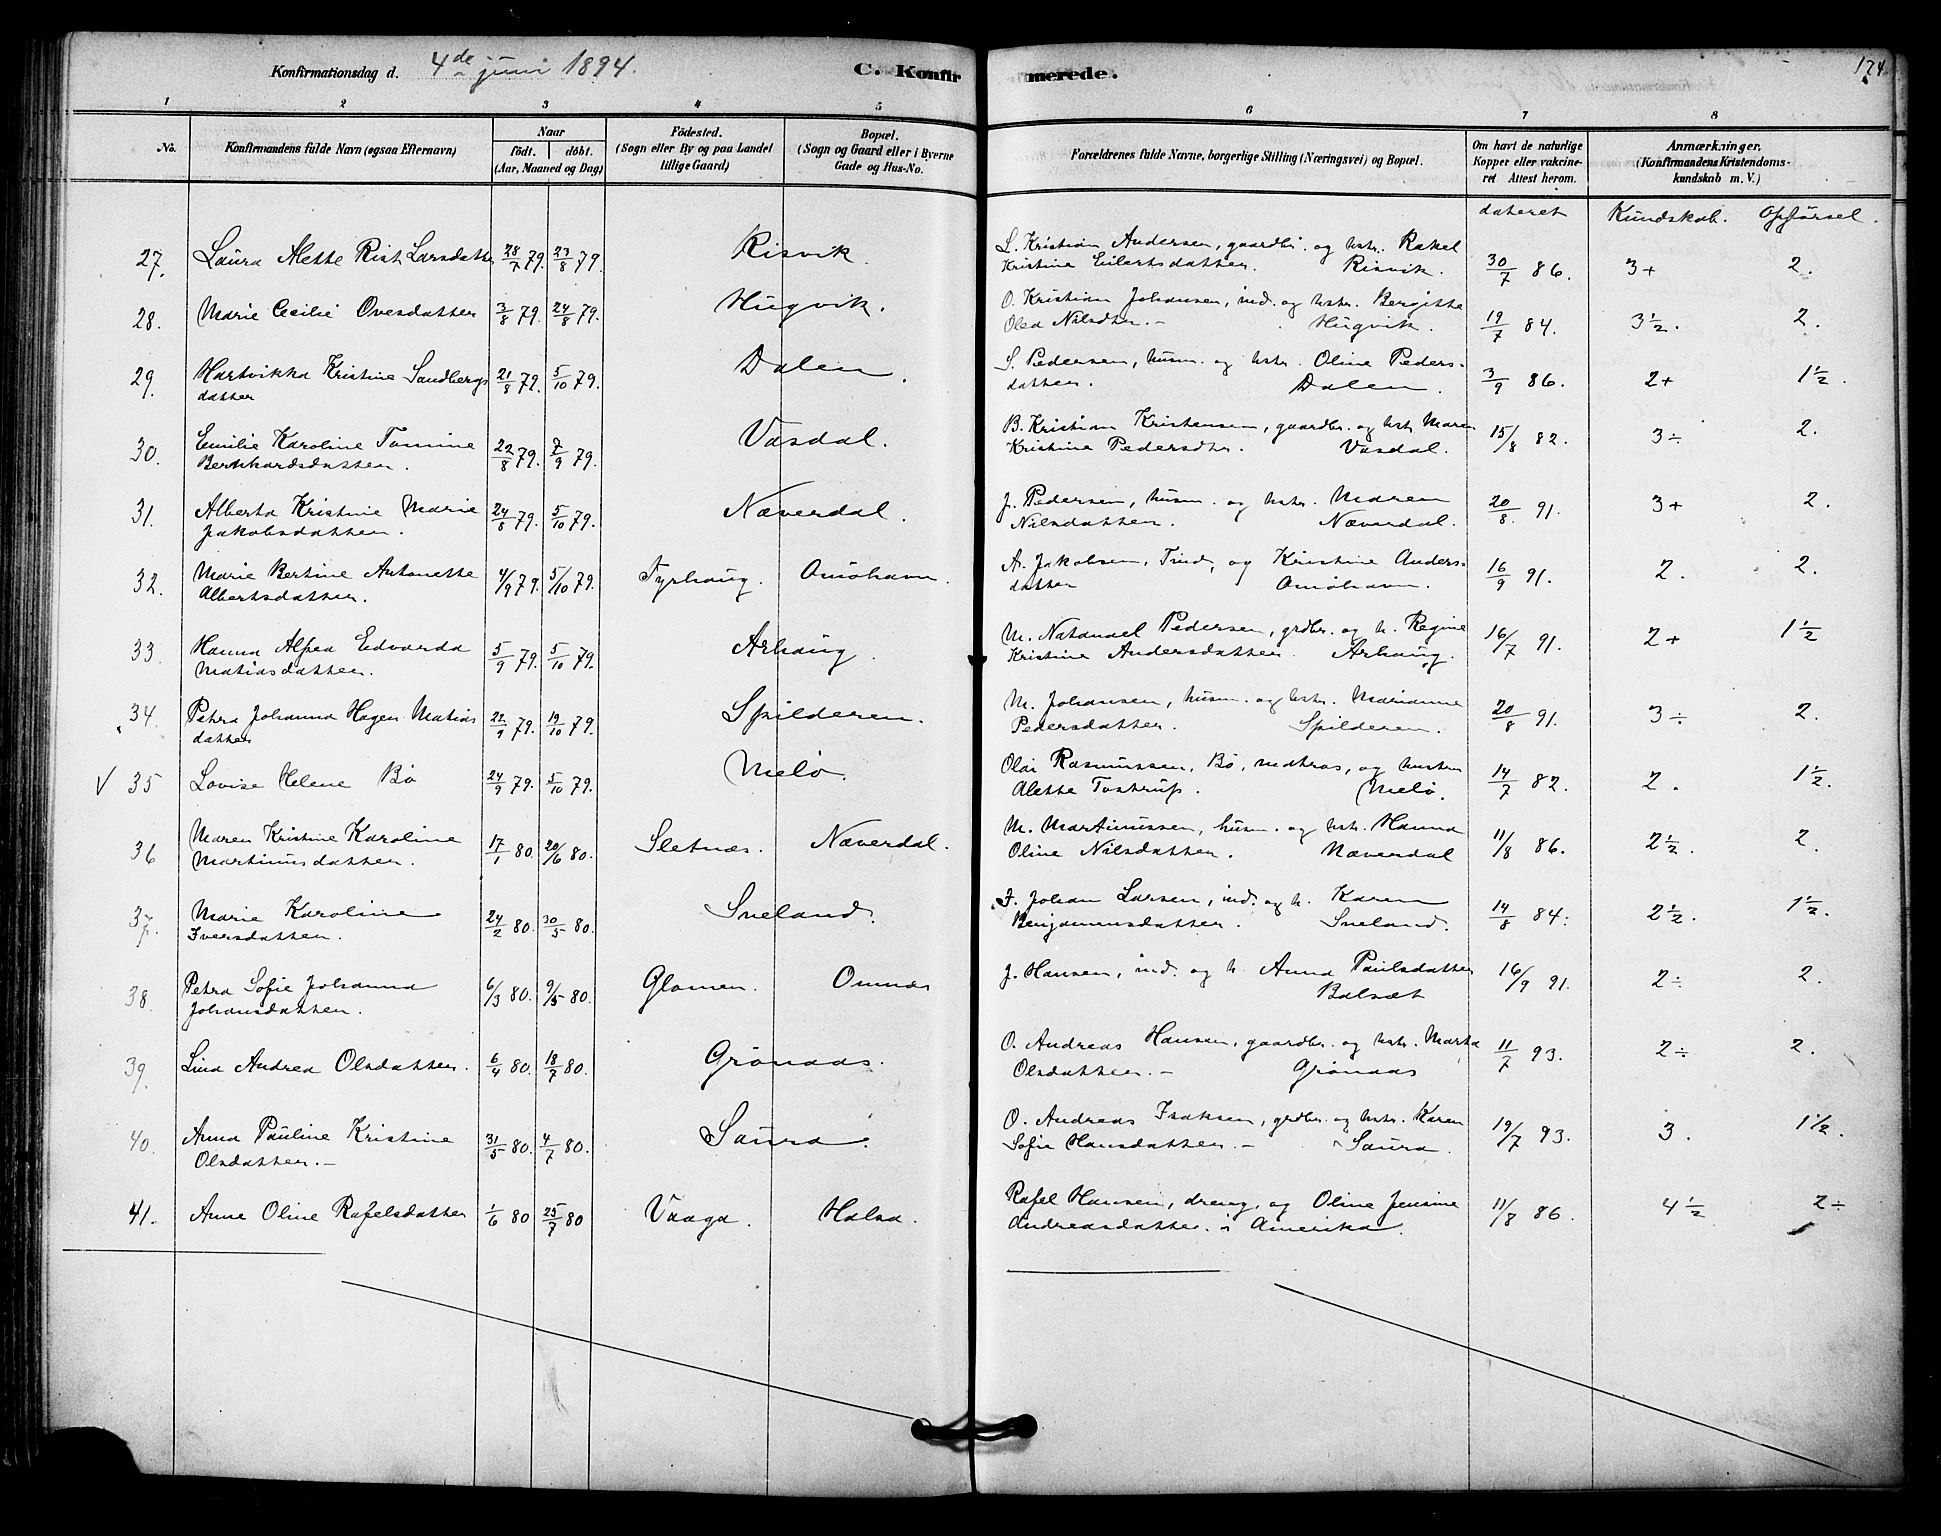 Konfirmationsdag d. 4de juni 1894. C. Konfirmerede. 174
1 2 3 4 5 6 7 8
No. Konfirmandens fulde Navn (ogsaa Efternavn) Naar født. døbt. (Aar, Maaned og Dag) Fødested. (Sogn eller By og paa Landet tillige Gaard) Bopæl. (Sogn og Gaard eller i Byerne Gade og Hus-No. Forældrenes fulde Navne, borgerlige Stilling (Næringsvei) og Bopæl. Om havt de naturlige Kopper eller vakcineret Attest herom. Anmærkninger. (Konfirmandens Kristendomskundskab m. V.)
dateret Kundskab. Opførsel.
27. Laura Alette Rist Larsdatter 28/7 79. 23/8 79. Risvik. L. Kristian Andersen, gaardbr. og hstr. Rakel
Kristine Eilertsdatter. Risvik. 30/7 86. 3+ 2.
28. Marie Cecilie Ovesdatter 3/8 79. 24/8 79. Hugvik. O. Kristian Johansen, ind. og hstr. Bergitte
Olea Nilsdtr. - Hugvik. 19/7 84. 3½. 2.
29. Hartvikka Kristine Sandbergs 21/8 79. 5/10 79. Dalen. S. Pedersen, husm. og hstr. Oline Peders-
datter datter. Dalen. 3/9 86. 2+ 1½.
30. Emilie Karoline Tomine 22/8 79. 7/9 79. Vasdal. B. Kristian Kristensen, gaardbr. og hstr. Maren
Bernhardsdatter. Kristine Pedersdtr. Vasdal. 15/8 82. 3÷ 2.
31. Alberta Kristine Marie 24/8 79. 5/10 79. Næverdal. J. Pedersen, husm. og hstr. Maren
Jakobsdatter. Nilsdatter. Næverdal. 20/8. 91. 3+ 2.
32. Marie Bertine Antonette 4/9 79. 5/10 79. Tyrhaug. Omøhavn. A. Jakobsen, Tind, og Kristine Anders-
Albertsdatter. datter Omøhavn. 16/9 91. 2. 2.
33. Hanna Alfea Edvarda 5/9 79. 5/10 79. Arhaug. M. Natanael Pedersen, grdbr. og h. Regine
Matiasdatter. Kristine Andersdatter. Arhaug. 16/7 91. 2+ 1½
34. Petra Johanna Hagen Matias 22/9 79. 19/10 79. Spilderen. M. Johansen, husm. og hstr. Marianne
datter Pedersdatter. Spilderen. 20/8 91. 3÷ 2.
V 35 Lovise Helene Bø 24/9 79. 5/10 79. Melø. Olai Rasmussen, Bø, matros, og hustru
Alette Tostrup. Melø. 14/7 82. 2. 1½.
36 Maren Kristine Karoline 17/1 80. 20/6 80. Sletnæs. Næverdal. M. Martinussen, husm. og hstr. Hanna
Martinusdatter. Oline Nilsdatter. Næverdal 11/8 86. 2½. 2.
37. Marie Karoline 24/2 80. 30/5 80. Sneland. I. Johan Larsen, ind. og h. Karen
Iversdatter. Benjaminsdatter. Sneland. 14/8 84. 2½. 1½.
38. Petra Sofie Johanna 6/3 80. 9/5 80. Glomen. Omnæs J. Hansen, ind. og h. Anna Paulsdatter
Johansdatter. Balsæt 16/9 91. 2÷ 2.
39. Lina Andrea Olsdatter. 6/4 80. 18/7 80. Grønaas. O. Andreas Hansen, gaardbr. og hstr. Marta
Olsdatter. - Grønaas 11/7 93. 2÷ 2.
40. Anna Pauline Kristine 31/5 80. 4/7 80. Saura. O. Andreas Isaksen, grdbr. og hstr. Karen
Olsdatter. - Sofie Hansdatter. - Saura. 19/7 93. 3. 1½.
41. Anne Oline Rafelsdatter 1/6 80 25/7 80 Vaaga. Halsa. Rafel Hansen, dreng, og Oline Jensine
Andreasdatter i Amerika. 11/8 86. 4½ 2÷